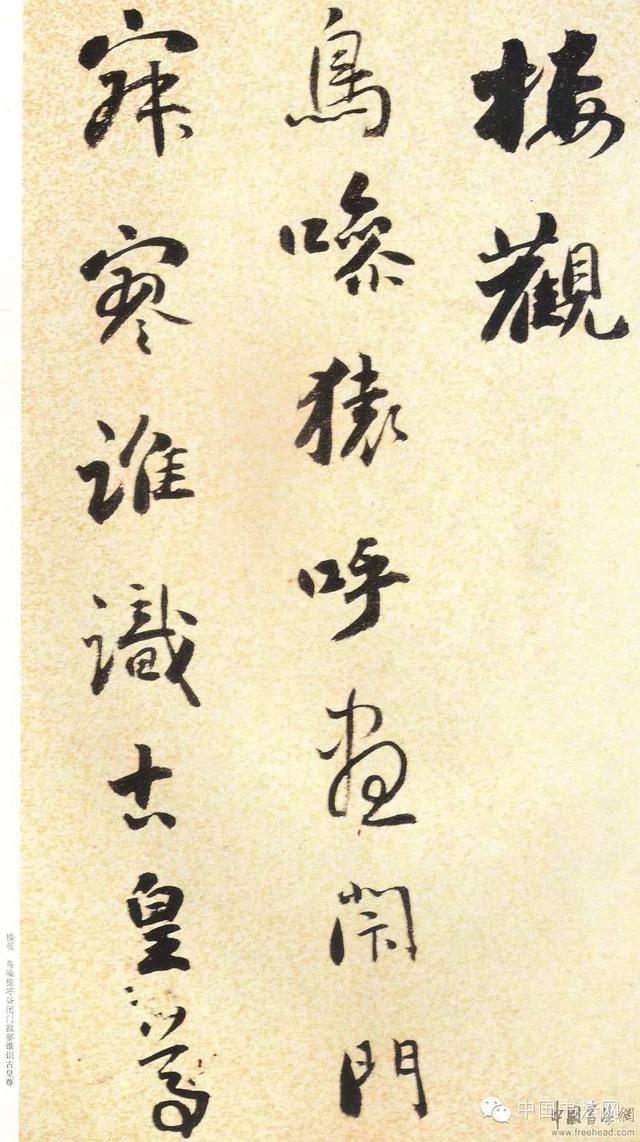 楼觀
鳥噪猿呼晝閉門
寂寥誰識古皇尊
楼观 鸟噪猿呼昼闭门寂寥谁识古皇尊
中国书法网
中國書法網
www.freehead.com